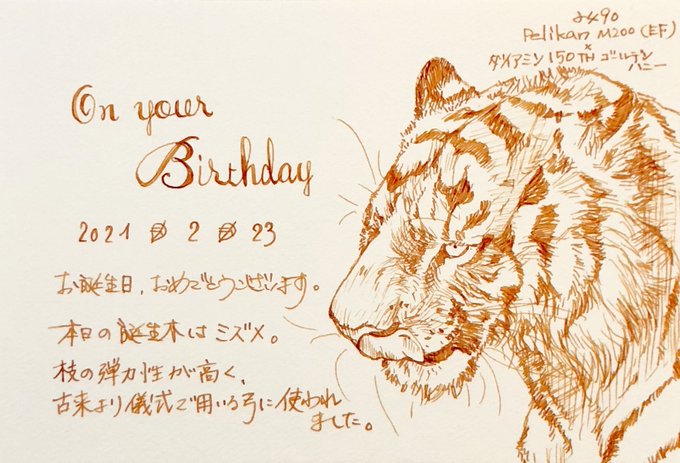 2490
Pelikan M200 (EF)
×
ダイアミン 150TH ゴールデン
ハニー
On your
Birthday
2021 2 23
お誕生日、おめでとうございます。
本日の誕生木はミズメ。
枝の弾力性が高く、
古来より儀式で用いる弓に使われ
ました。